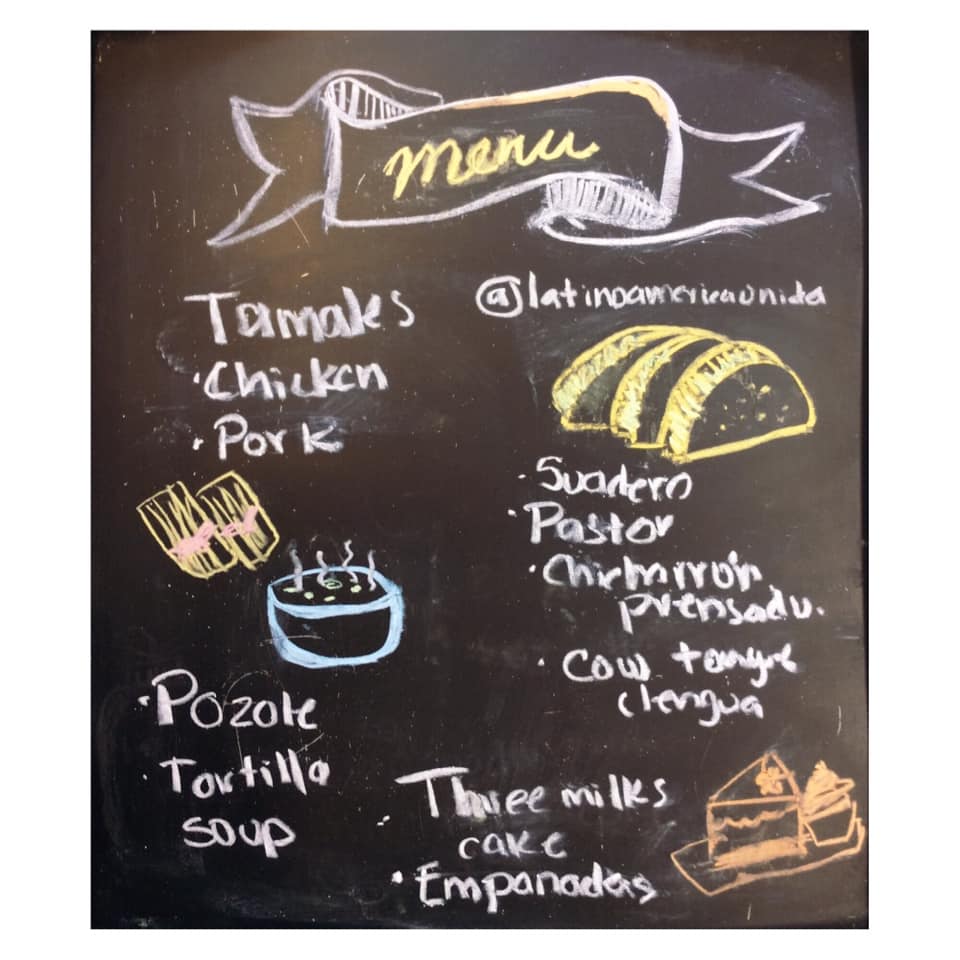 menu
Tamales
• Chicken
• Pork
@latinoamericaunida
• Suadero
• Pastor
• Chicharrón
prensadu.
• Cow tongue
(lengua
• Pozole
• Tortilla
soup
Three milks
cake
• Empanadas